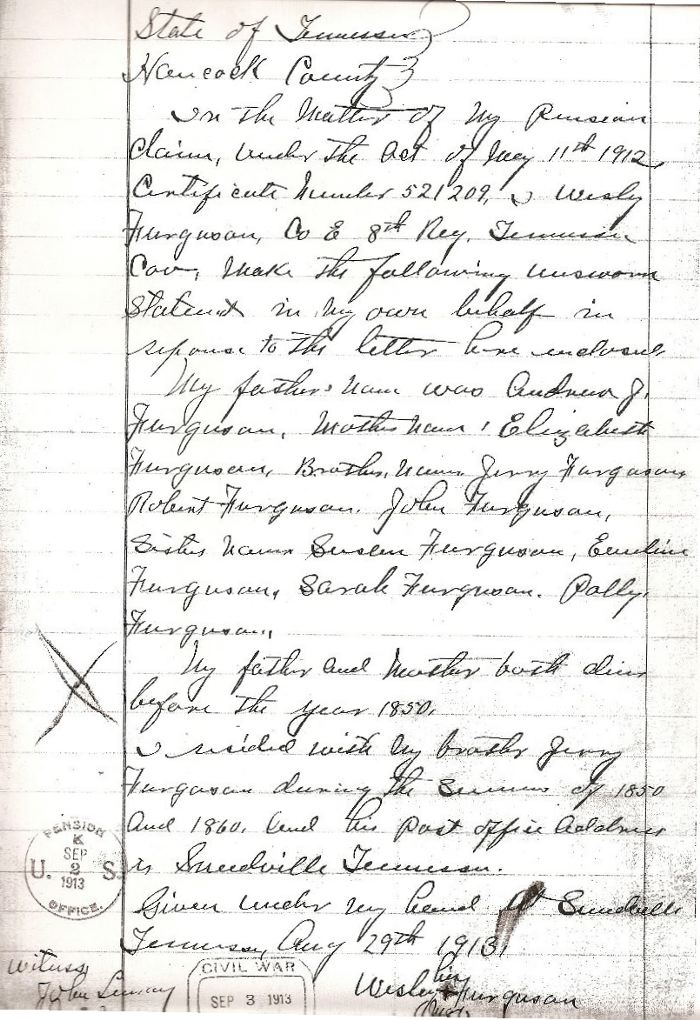 State of Tennessee
Hancock County
In the Matter of My Pension
Claim, under the Act of May 11th 1912,
Certificate Number 521209, I Wesly
Furguson, Co E 8th Reg. Tennessee
Cav, Make the following unsworn
Statemt in My own behalf in
reponse to the letter here enclosed
My father's Name was Andrew J.
Furguson, Mother Name, Elizabeth
Furguson, Brothers, Names Jerry Furguson
Robert Furguson. John Furguson,
Sisters Names Susan Furguson, Emiline
Furguson, Sarah Furguson. Polly
Furguson,
My father and Mother both died
before the year 1850.
I resided with My brother Jerry
Furguson during the Summer of 1850
and 1860. and his Post office Address
is Sneedville Tennessee.
Given under My hand At Sneedville
Tennessee, Aug 29th 1913.
PENSION
K
SEP
2
U. S.
1913
OFFICE.
Witness
John
CIVIL WAR
SEP 3 1913
Wesley his Furguson